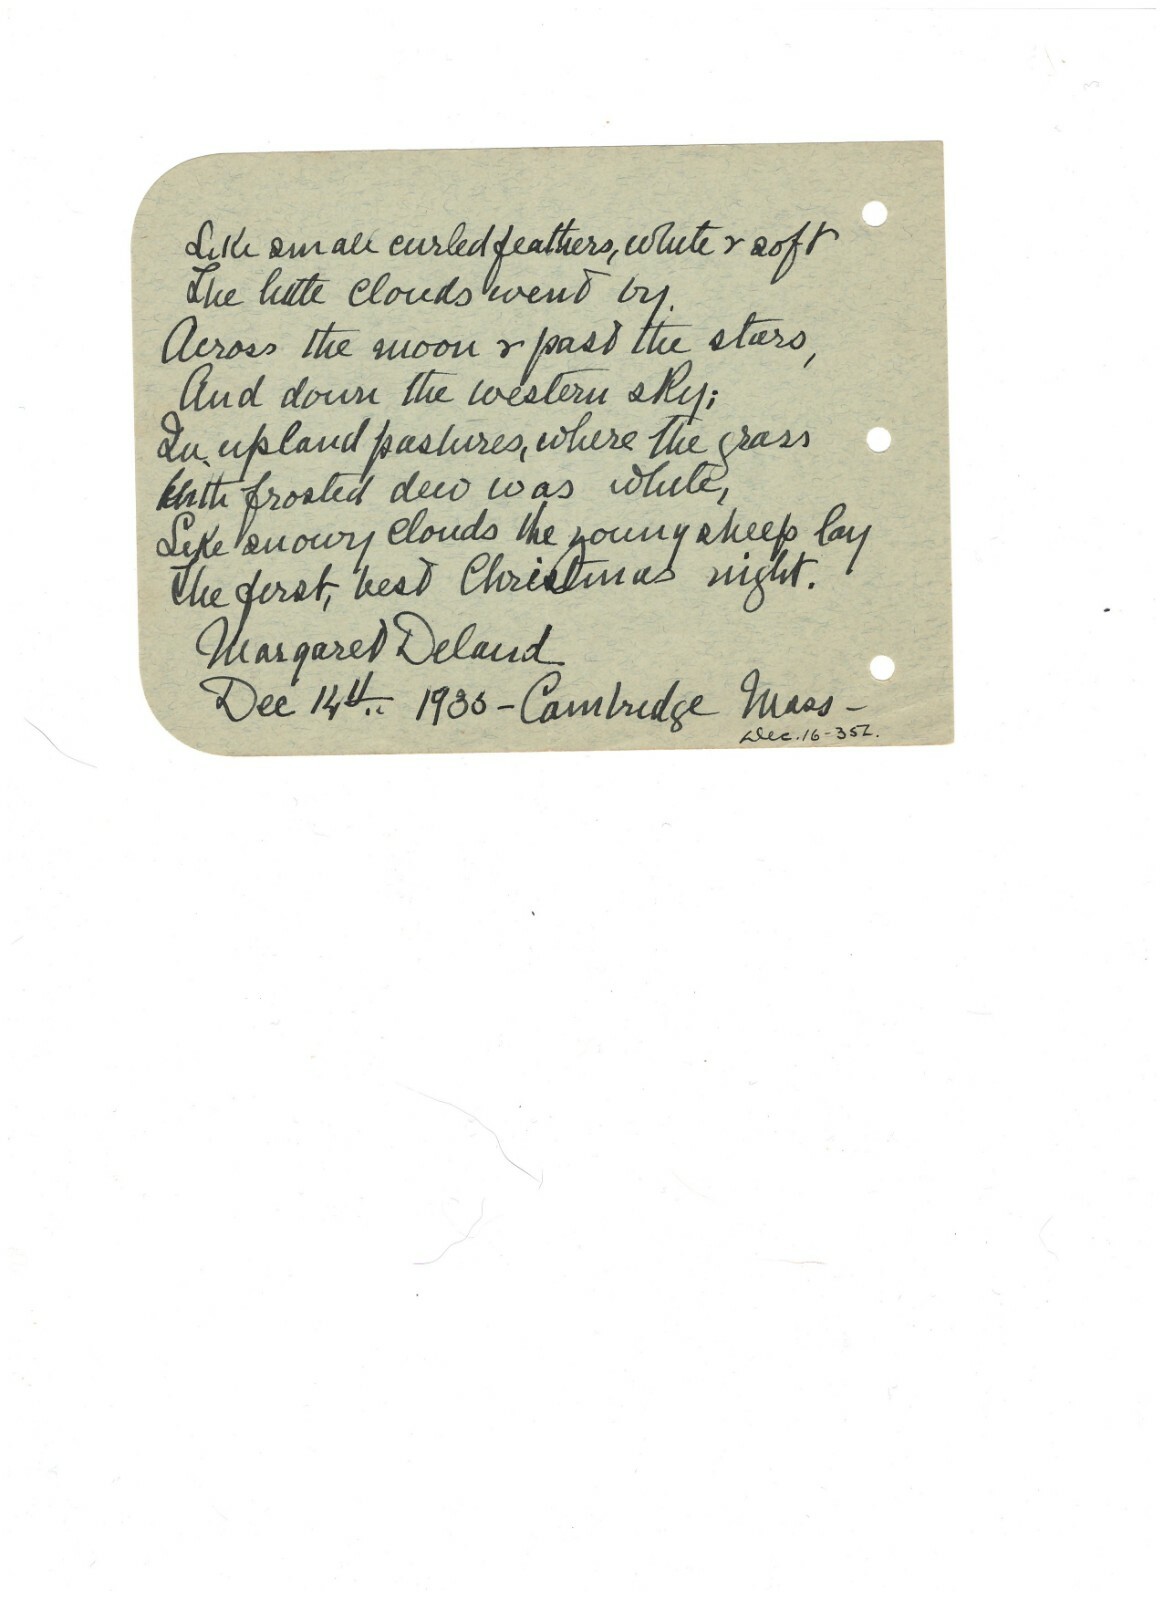 Like small curled feathers, white & soft
The little clouds went by.
Across the moon & past the stars,
And down the western sky;
In upland pastures, where the grass
With frosted dew was white,
Like snowy clouds the young sheep lay
The first, best Christmas night.
Margaret Deland
Dec 14th.. 1935 - Cambridge Mass -
Dec. 16-35